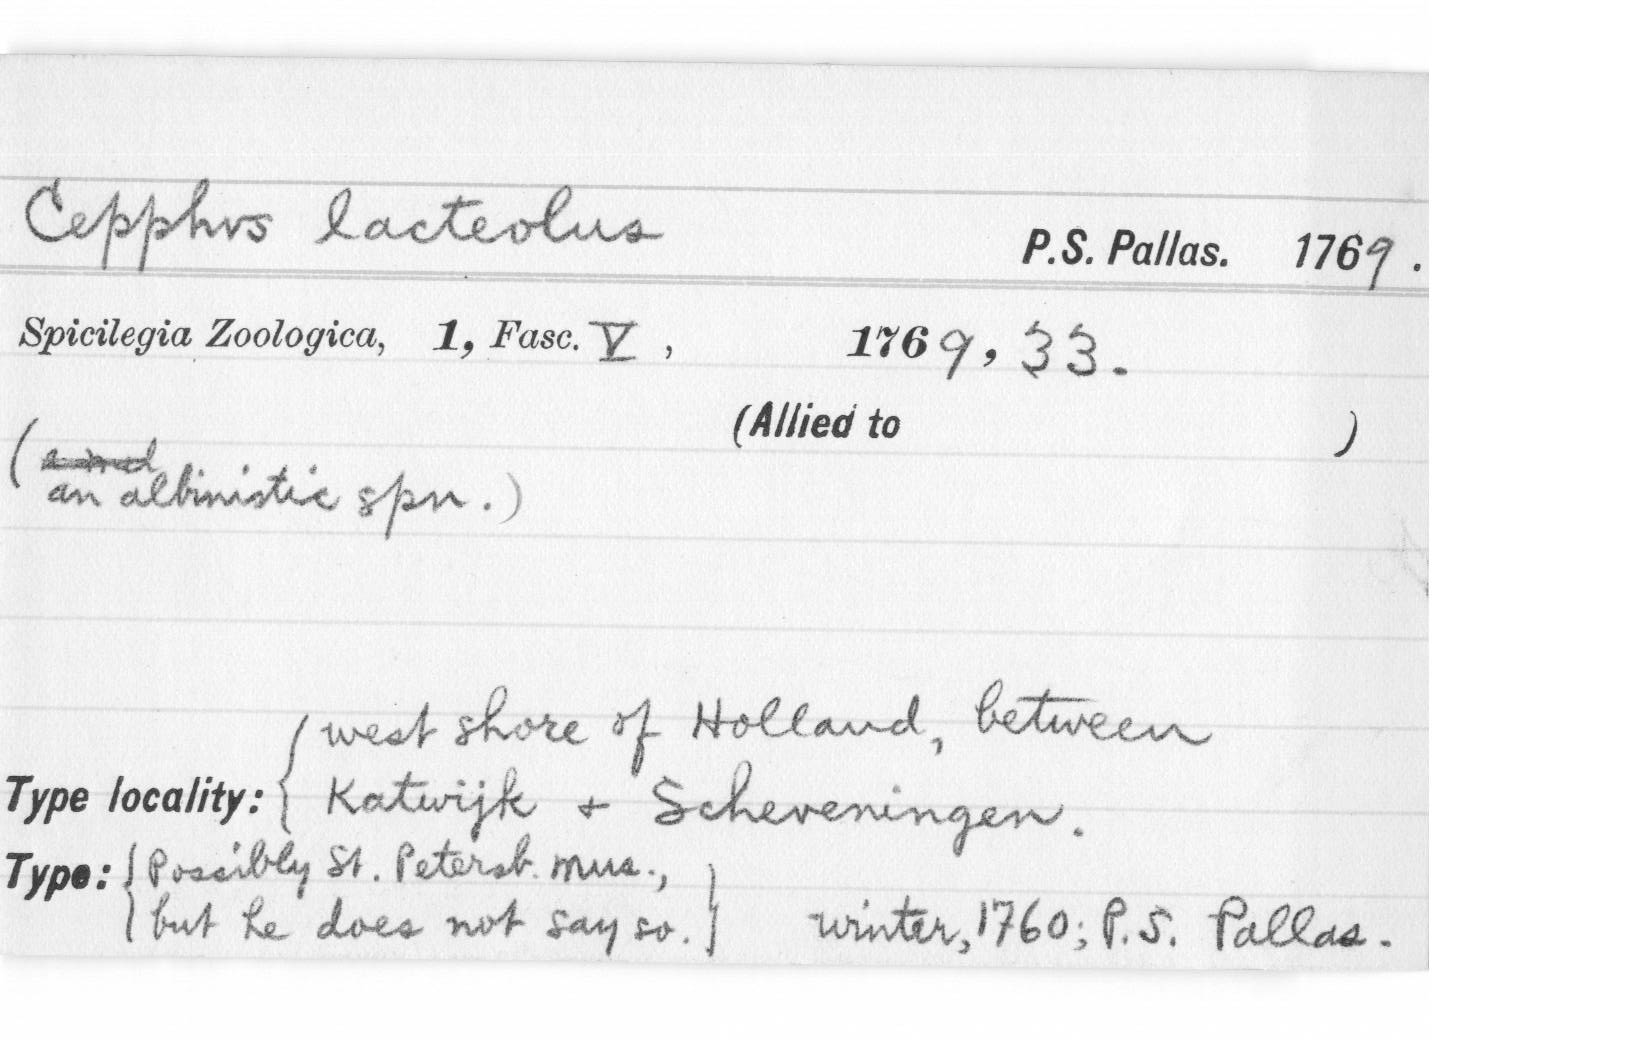 Cepphus lacteolus P.S. Pallas. 1769.
Spicilegia Zoologica, 1, Fasc. V, 1769, 33.
(Allied to )
(
an albinistic spn.)
west shore of Holland, between
Type locality: Katwijk + Scheveningen.
Type: Possibly St. Petersb. Mus.,
but he does not say so. winter, 1760; P.S. Pallas.